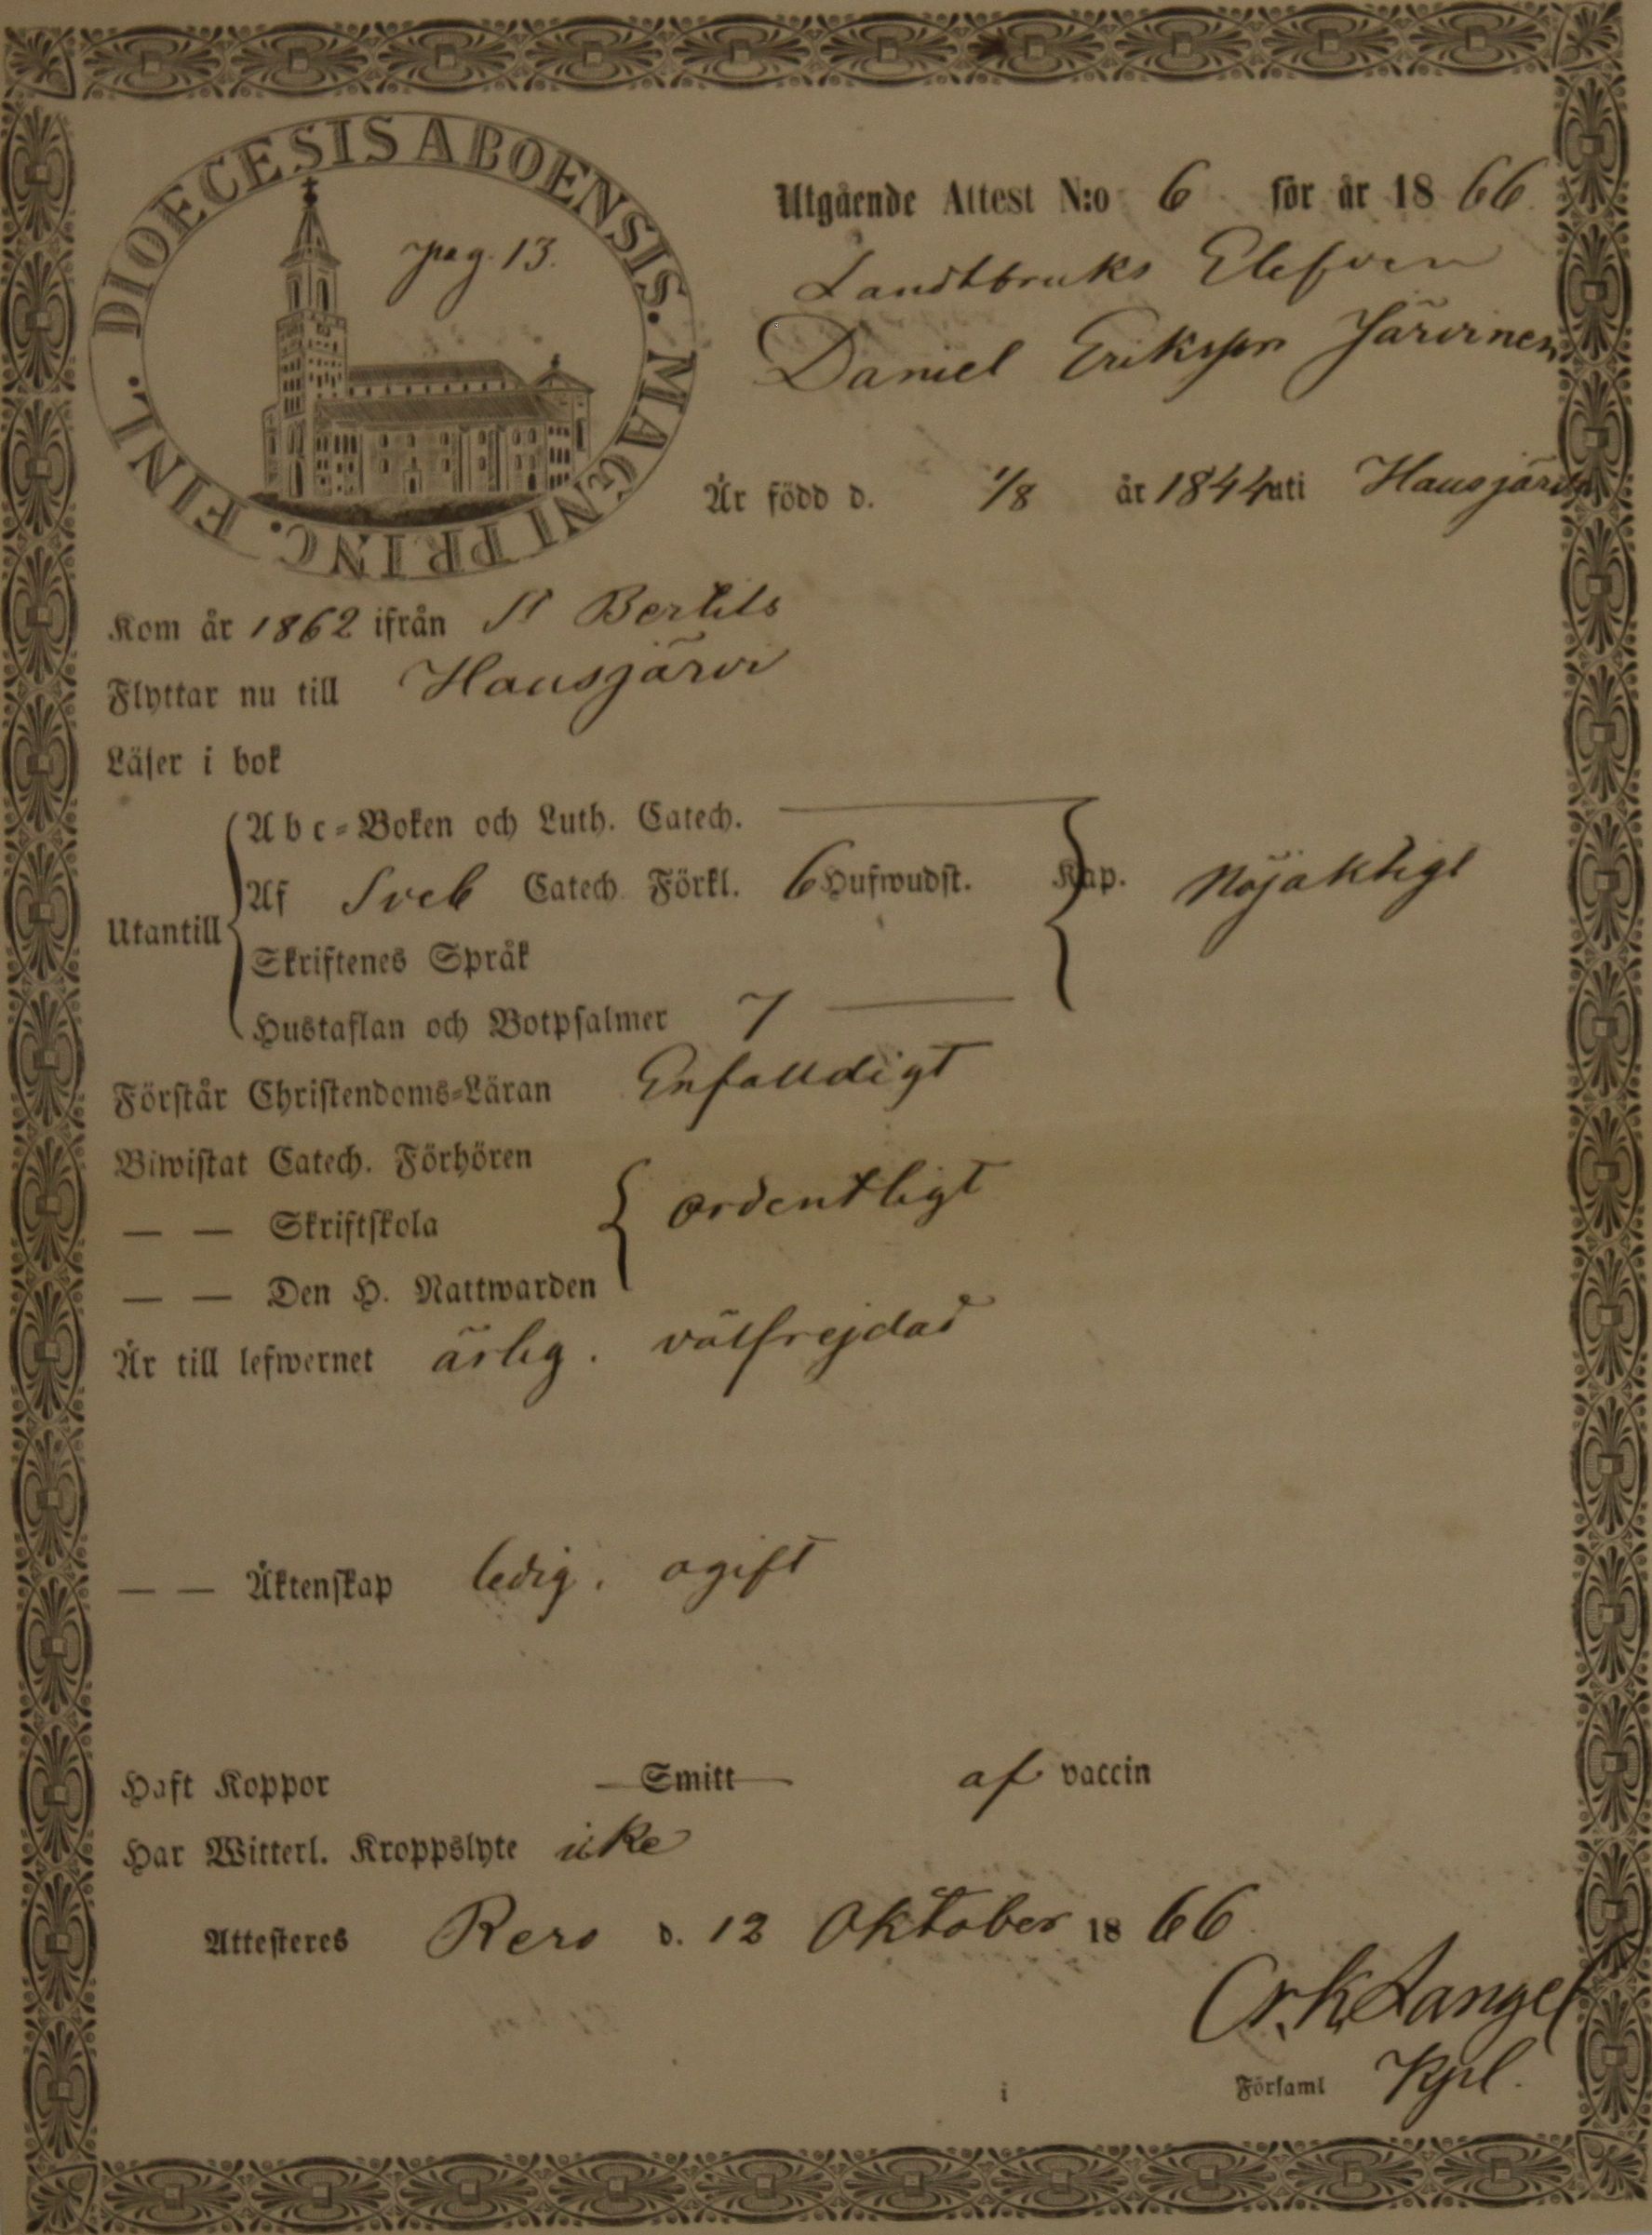 DIOECESIS ABOENSIS. MAGNI PRINC. FINL.
pag. 13.
Utgående Attest N:o 6 för år 1866.
Landtbruks Elefven
Daniel Eriksson Järvinen
Är född d. 1/8 år 1844 uti Hausjärvi
Kom år 1862 ifrån St Bertils
Flyttar nu till Hausjärvi
Läser i bok
Utantill
Abc-Boken och Luth. Catech.
Af Sveb Catech. Förkl. 6 Hufwudst. Kap. Nöjaktigt
Skriftenes Språk
Hustaflan och Botpsalmer 7
Förstår Christendoms-Läran Enfalldigt
Biwistat Catech. Förhören
— — Skriftskola ordentligt
— — Den H. Nattwarden
Är till lefwernet ärlig. välfrejdad
— — Äktenskap ledig. ogift
Haft Koppor Smitt af vaccin
Har Witterl. Kroppslyte icke
Attesteres Reso d. 12 Oktober 1866.
Langel
i Församl Kpl.